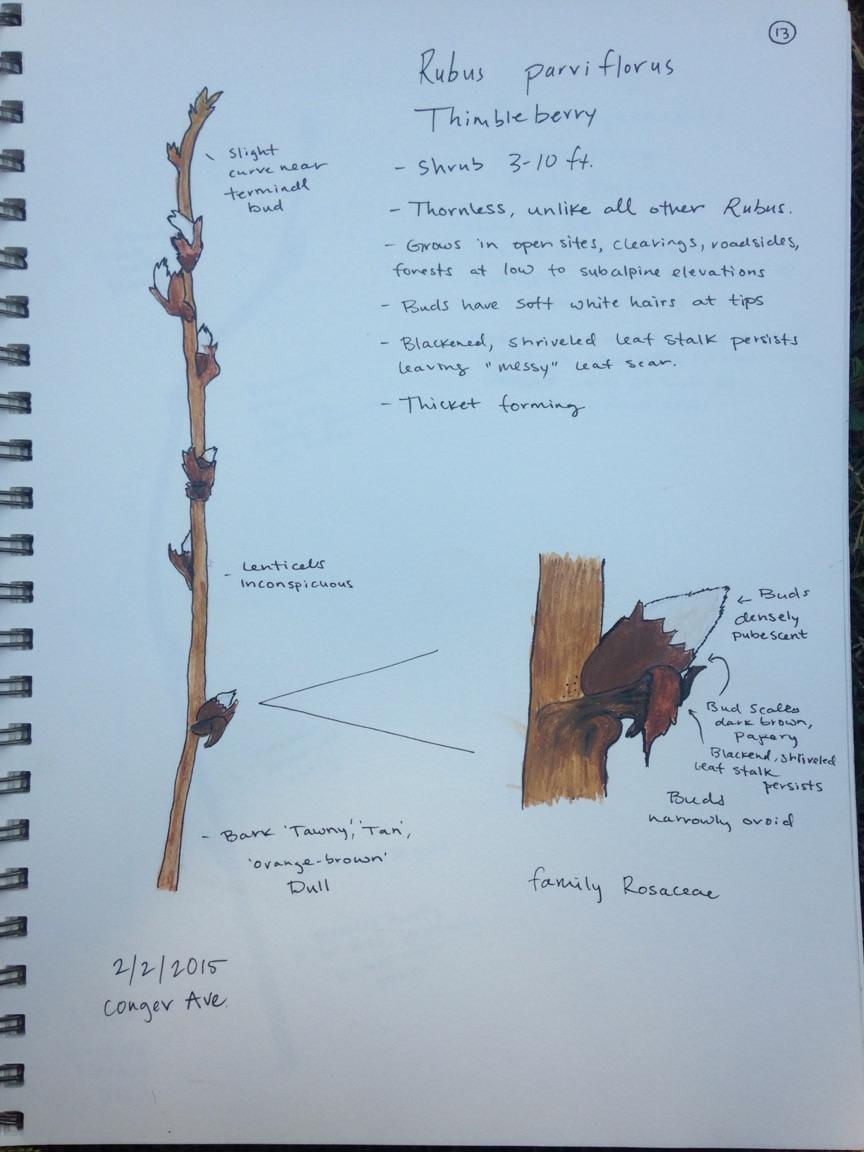 13
Rubus parviflorus
Thimbleberry
- Shrub 3-10 ft.
- Thornless, unlike all other Rubus.
- Grows in open sites, clearings, roadsides,
forests at low to subalpine elevations
- Buds have soft white hairs at tips
- Blackened, shriveled leaf stalk persists
leaving "messy" leaf scar.
- Thicket forming
slight
curve near
terminal
bud
- Lenticels
inconspicuous
← Buds
densely
pubescent
Bud scales
dark brown,
papery
Blackend, shriveled
leaf stalk
persists
Buds
narrowly ovoid
- Bark 'Tawny', 'Tan',
'orange-brown'
Dull
family Rosaceae
2/2/2015
Conger Ave.